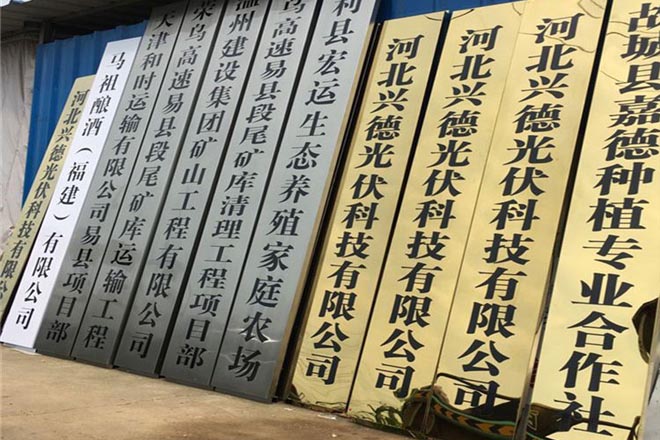 河北兴德光伏科技有限公司
马祖酿酒（福建）有限公司
天津和时运输有限公司易县项目部
荣乌高速易县段尾矿库运输工程
温州建设集团矿山工程有限公司
乌高速易县段尾矿库清理工程项目部
利县宏运生态养殖家庭农场
河北兴德光伏科技有限公司
河北兴德光伏科技有限公司
河北兴德光伏科技有限公司
故城县嘉德种植专业合作社